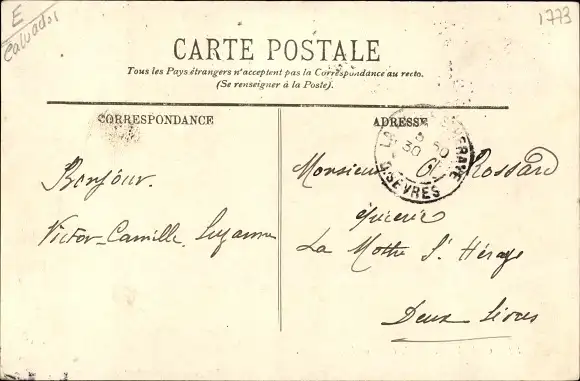 E
Calvados
1773
CARTE POSTALE
Tous les Pays étrangers n'acceptent pas la Correspondance au recto.
(Se renseigner à la Poste).
CORRESPONDANCE
ADRESSE
Bonjour.
Victor-Camille, Suzanne
Monsieur Rossard
épicerie
La Mothe St Héraye
Deux Sèvres
30
D. SÈVRES